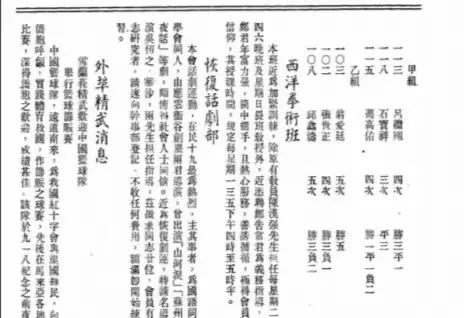 甲組
一一三 呂禮翔 四次 勝三平一
一一八 石寶祥 三次 平三
一一五 馮高佑 三次 勝一平一負一
乙組
一〇三 翁愛廷 五次 勝五
一〇二 張世正 四次 勝三負一
一〇八 邱鑫濤 五次 勝三負二
西洋拳術班
本班近為加緊訓練,除原有教員陳漢強先生担任每星期二
四六晚班及星期日晨班教授外,近添聘鄭吉常君為義務指導,
鄭君年富力強,箇中能手,且熱心服務,善誘循循,極得會員
信仰,其授課時間,規定每星期一三五下午四時至五時半。
恢復話劇部
本會話劇運動,在民十九最為熱烈,主其事者,為國語同
學會同人,由應雲衛谷劍塵兩君導演,曾出演「由河淚」「蘇州
夜話」等劇,頗博得社會人士同情。近為恢復劇運,特請名導
演吳仞之 華沙,兩先生担任指導,茲徵求同志廿位,會員有
志研究者,請速向幹事部登記,不收任何費用,額滿即開始練
習。
外埠精武消息
雪蘭莪精武歡迎中國籃球隊
舉行籃球籌賑賽
中國籃球隊,遠道南來,為我國紅十字會與祖國難民,向
僑胞呼籲,實踐體育救國,作籌賑之球賽,先後在馬來亞各地
比賽,深得僑胞之歡迎,成績甚佳。該隊於九一八紀念之前夜